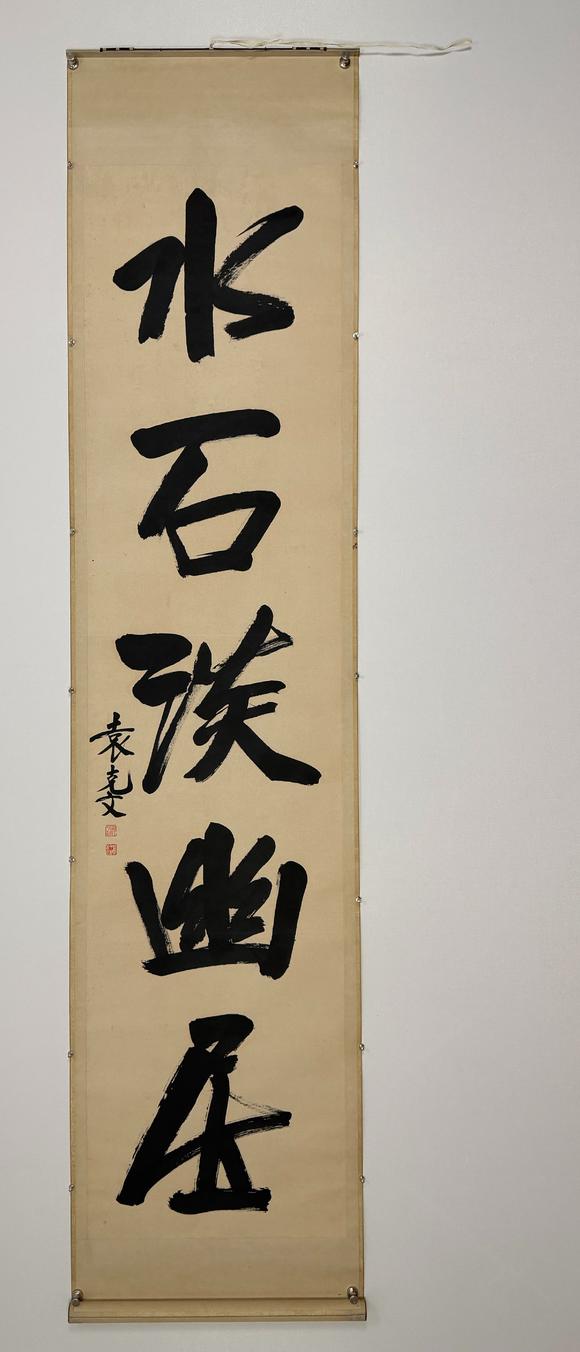 水石淡幽居
袁克文